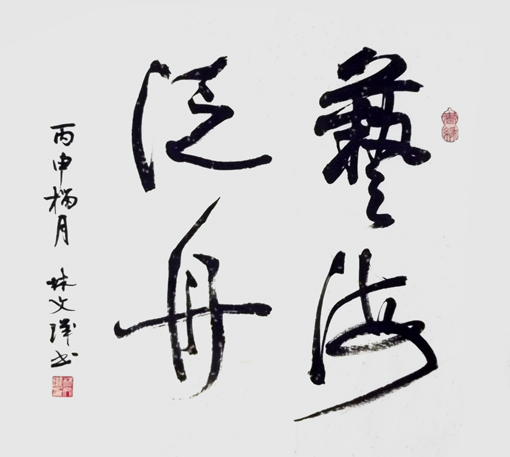 藝海
泛舟
丙申月林文书